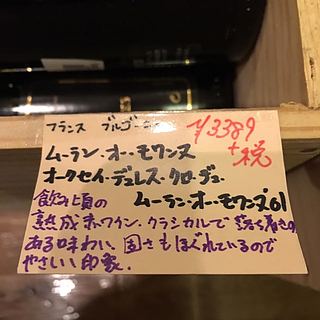 フランス ブルゴーニュ
¥3389
+税
ムーラン・オー・モワンヌ
オークセイ・デュレス・クロ・デュ・
ムーラン・オー・モワンヌ'01
飲み頃の
熟成赤ワイン。クラシカルで落ち着きの
ある味わい、固さもほぐれているので
やさしい印象。